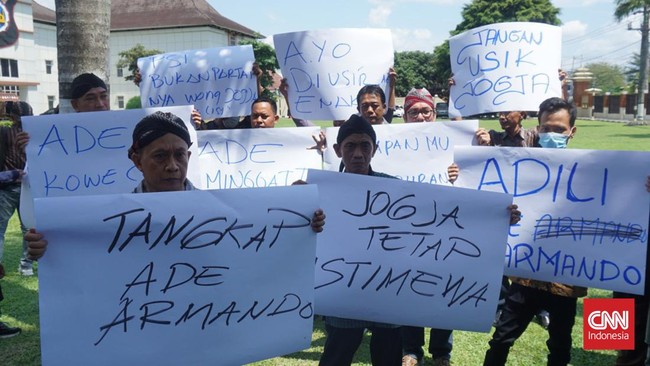 BUKAN PARTAI
NYA WONG JOGJA
AYO
DIUSIR
JANGAN
USIK
JOGJA
ADE
KOWE
ADE
MINGGAT
ADILI
ARMANDO
ARMANDO
TANGKAP
ADE
ARMANDO
JOGJA
TETAP
ISTIMEWA
CNN
Indonesia